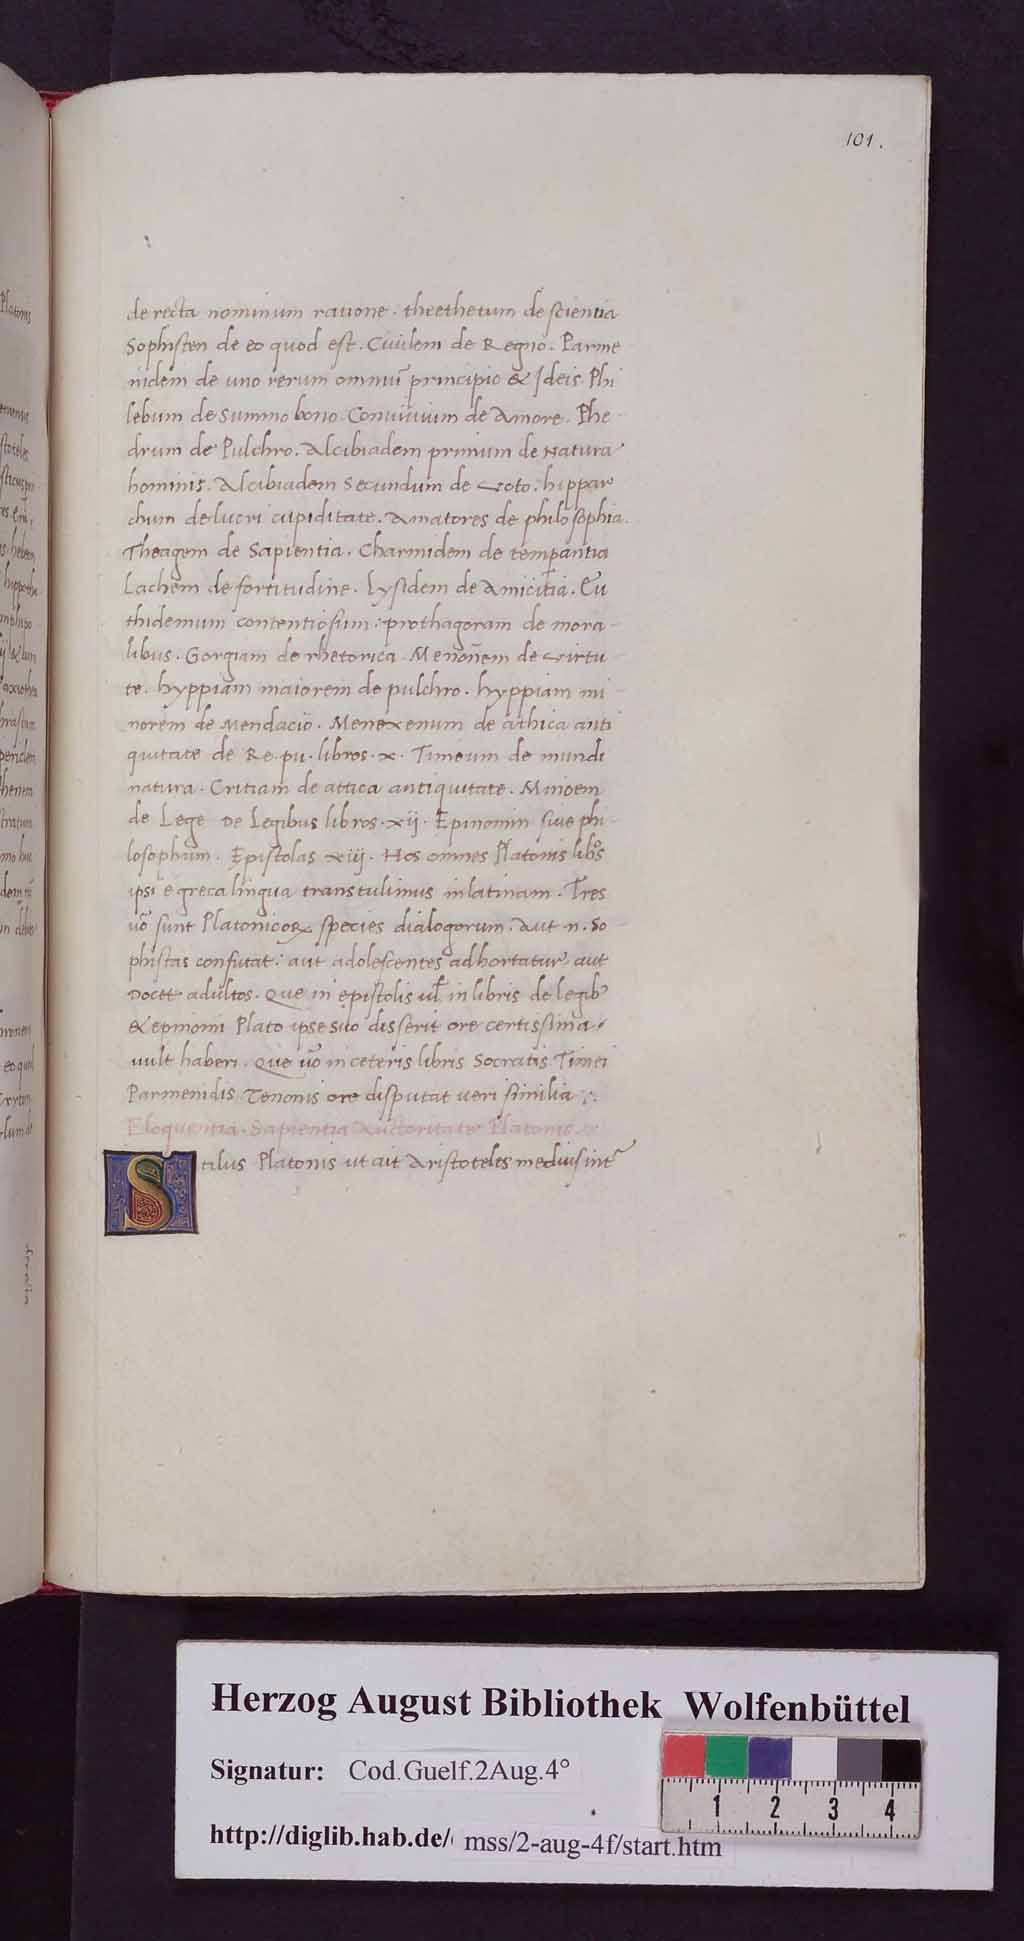 101.
de recta nominum ratione. theethetum de scientia
Sophisten de eo quod est. Ciuilem de Regno. Parme
nidem de uno rerum omniũ principio & Ideis. Phi
lebum de Summo bono. Conuiuium de Amore. Phe
drum de Pulchro. Alcibiadem primum de Natura
hominis. Alcibiadem Secundum de Voto. hippar
chum de lucri cupiditate. Amatores de philosophia.
Theagem de Sapientia. Charmidem de tempantia
Lachem de fortitudine. Lysidem de Amicitia. Eu
thidemum contentiosum: prothagoram de mora
libus. Gorgiam de rhetorica. Menonem de Virtu
te. hyppiam maiorem de pulchro. hyppiam mi
norem de Mendacio. Menexenum de athica anti
quitate de Re. pu. libros. x. Timeum de mundi
natura. Critiam de attica antiquitate. Minoem
de Lege De Legibus libros. xij. Epinomin siue phi
losophum. Epistolas xiij. Hos omnes Platonis libos
ipsi e greca lingua transtulimus in latinam. Tres
uõ sunt Platonicoꝝ species dialogorum. Aut .n. So
phistas confutat: aut adolescentes adhortatur aut
Docet adultos. Que in epistolis ul̃ in libris de legib⁹
& epinomi Plato ipse suo disserit ore certissima
uult haberi. Que uõ in ceteris libris Socratis Timei
Parmenidis Zenonis ore disputat ueri similia
Eloquentia. Sapientia Auctoritate Platonis
Stilus Platonis ut ait Aristoteles medius int̃
Herzog August Bibliothek Wolfenbüttel
Signatur: Cod.Guelf.2Aug.4°
http://diglib.hab.de/ mss/2-aug-4f/start.htm
1 2 3 4